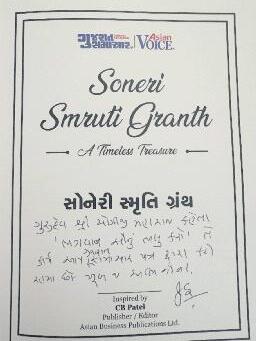 ગુજરાત સમાચાર Asian VOICE
Soneri
Smruti Granth
A Timeless Treasure
સોનેરી સ્મૃતિ ગ્રંથ
ગુરુદેવ શ્રી યોગીજી મહારાજ કહેતા
'ભગવાન સૌનું ભલું કરો' તે
કાર્ય આપ ગુજરાત સમાચાર પત્ર દ્વારા કરો
Inspired by
CB Patel
Publisher / Editor
Asian Business Publications Ltd.